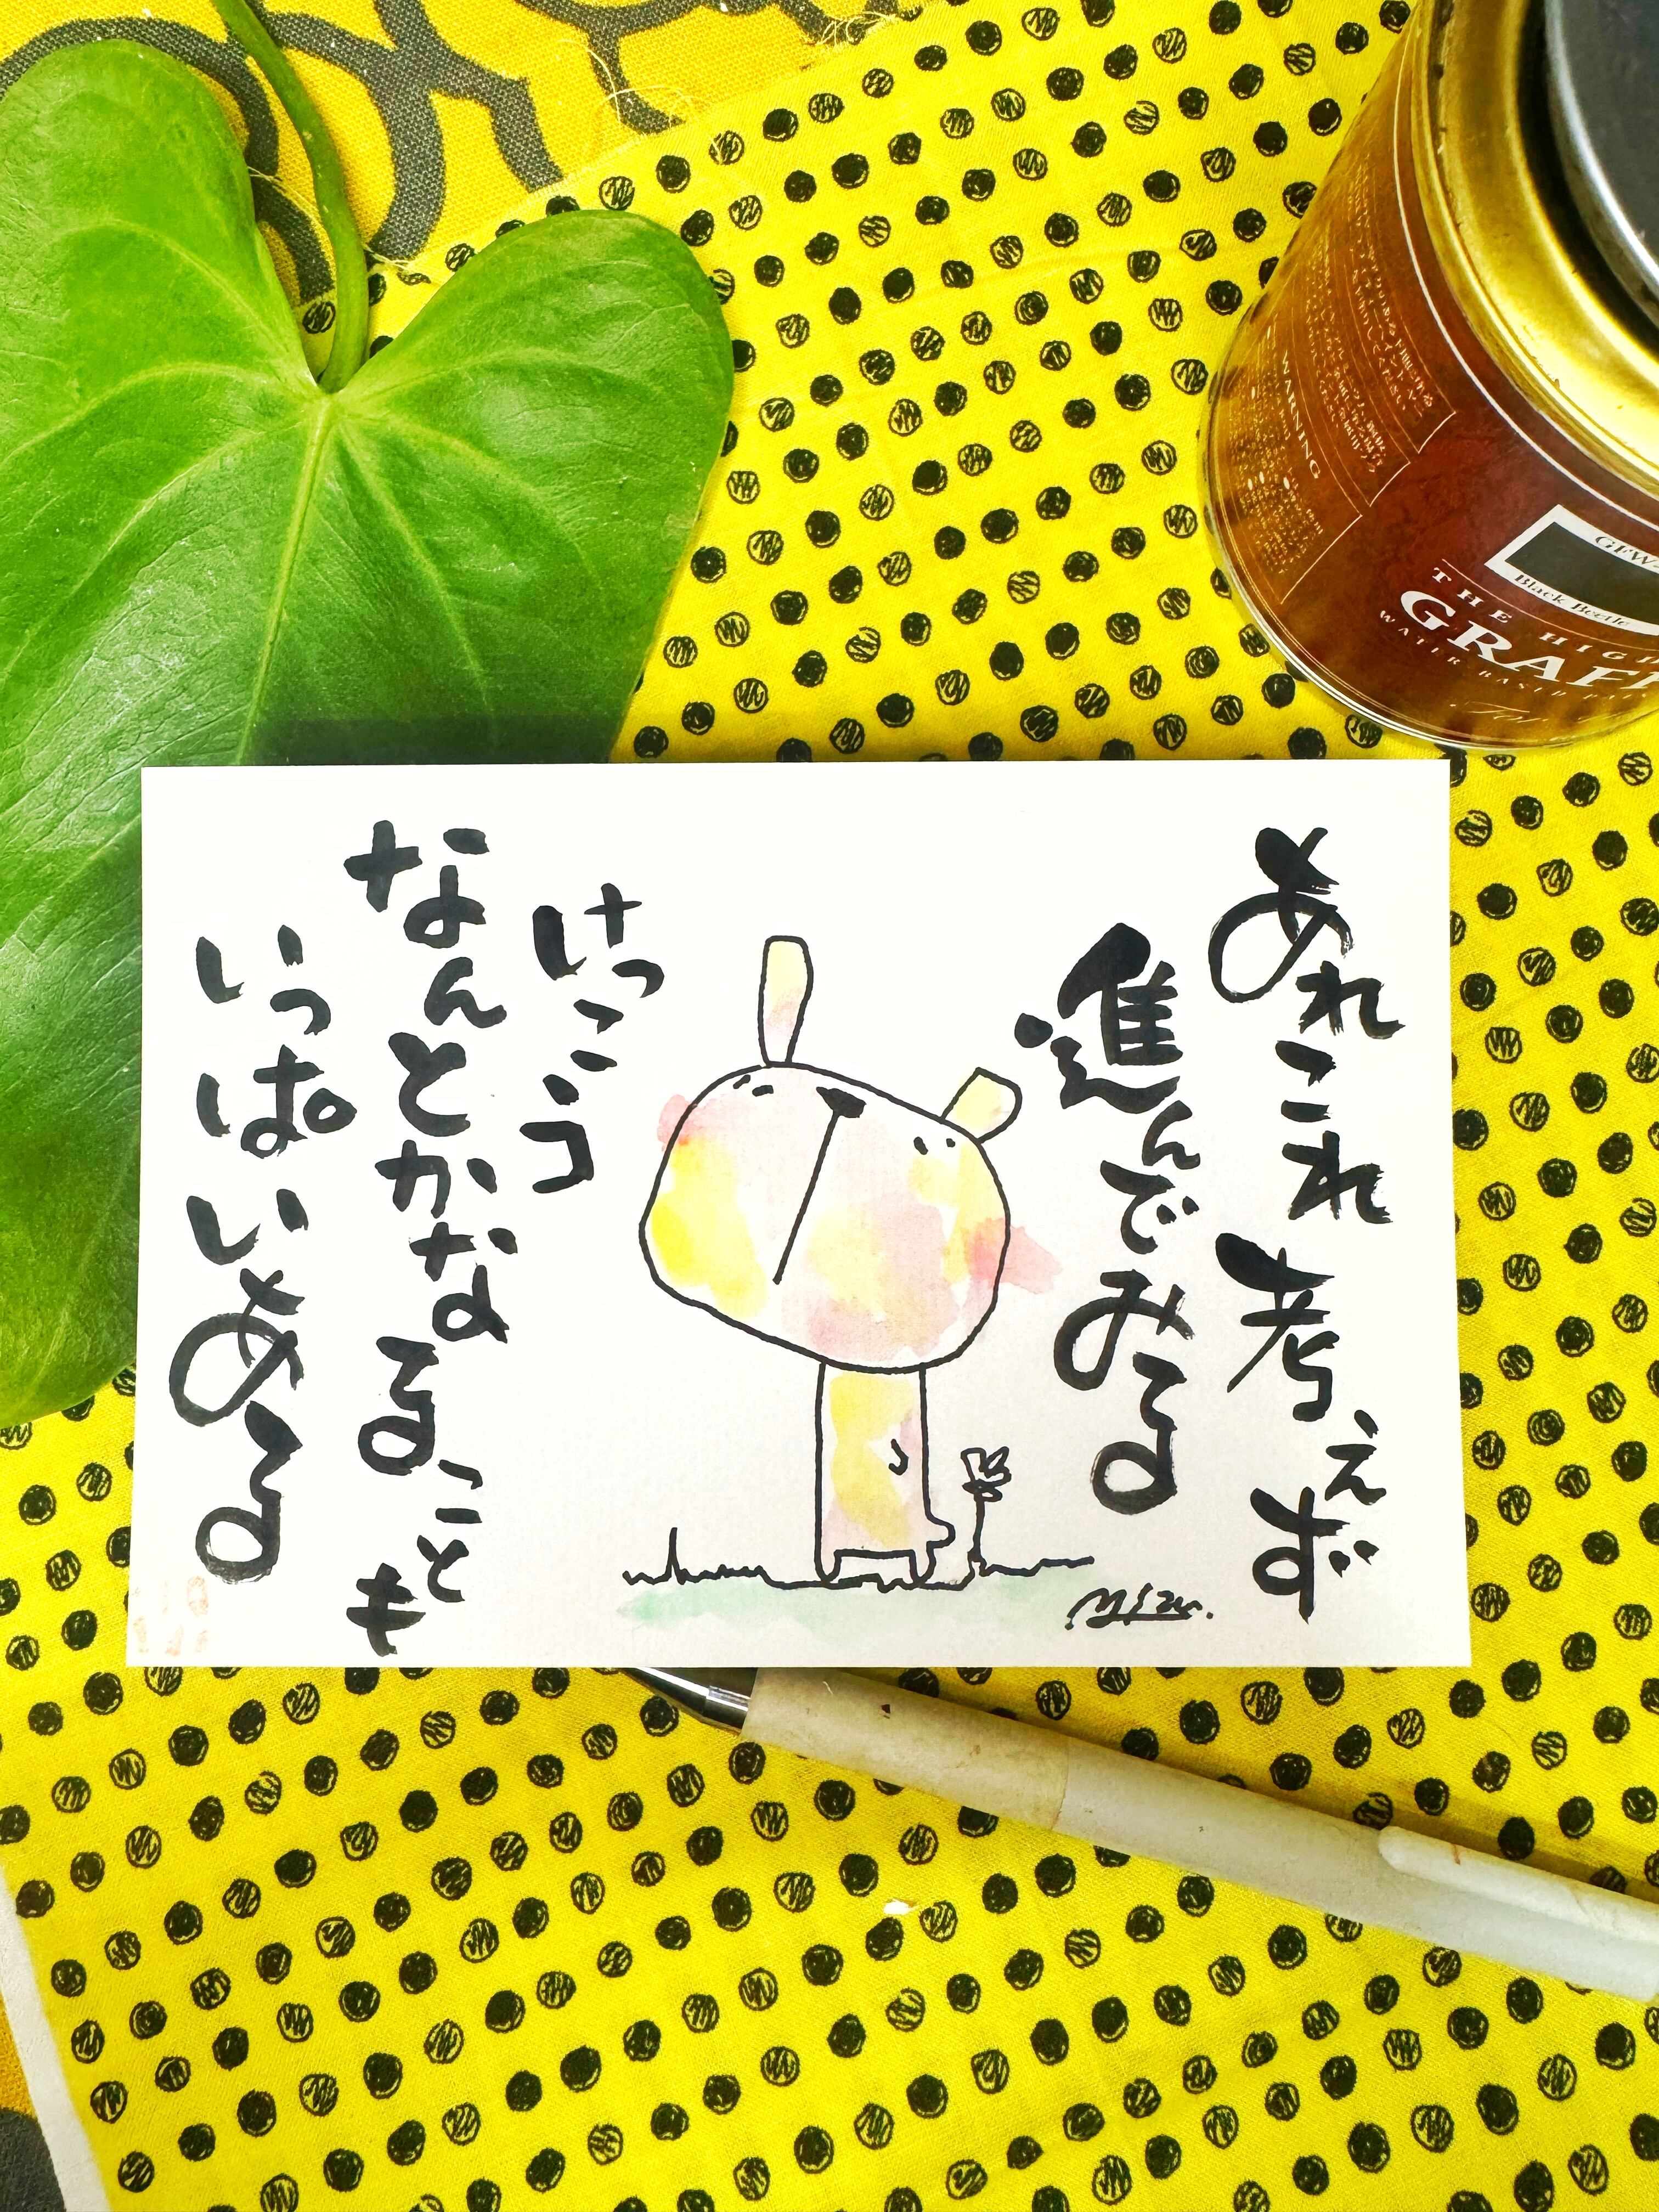 あれこれ考えず
進んでみる
けっこう
なんとかなることも
いっぱいある
WARNING
GFW-
Black Beetle
THE HIGH
GRAF
WATER BASED P
For